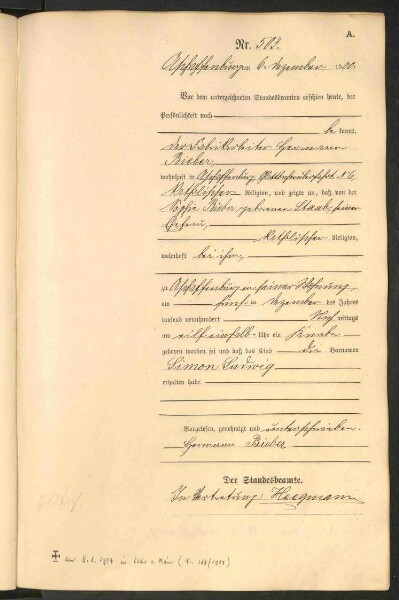 A.
Nr. 503.
Aschaffenburg am 6. Dezember 1900.
Vor dem unterzeichneten Standesbeamten erschien heute, der
Persönlichkeit nach
be kannt,
der Fabrikarbeiter Hermann
Bieber,
wohnhaft in Aschaffenburg, N. 6,
katholischer Religion, und zeigte an, daß von der
Sophia Bieber, geborenen Staab, seiner
Ehefrau,
katholischer Religion,
wohnhaft bei ihm,
zu Aschaffenburg in seiner Wohnung
am fünften Dezember des Jahres
tausend neunhundert Nach mittags
um eilfeinhalb Uhr ein Knabe
geboren worden sei und daß das Kind die Vornamen
Simon Ludwig
erhalten habe.
Vorgelesen, genehmigt und unterschrieben.
Hermann Bieber
Der Standesbeamte.
In Vertretung: Hergmann